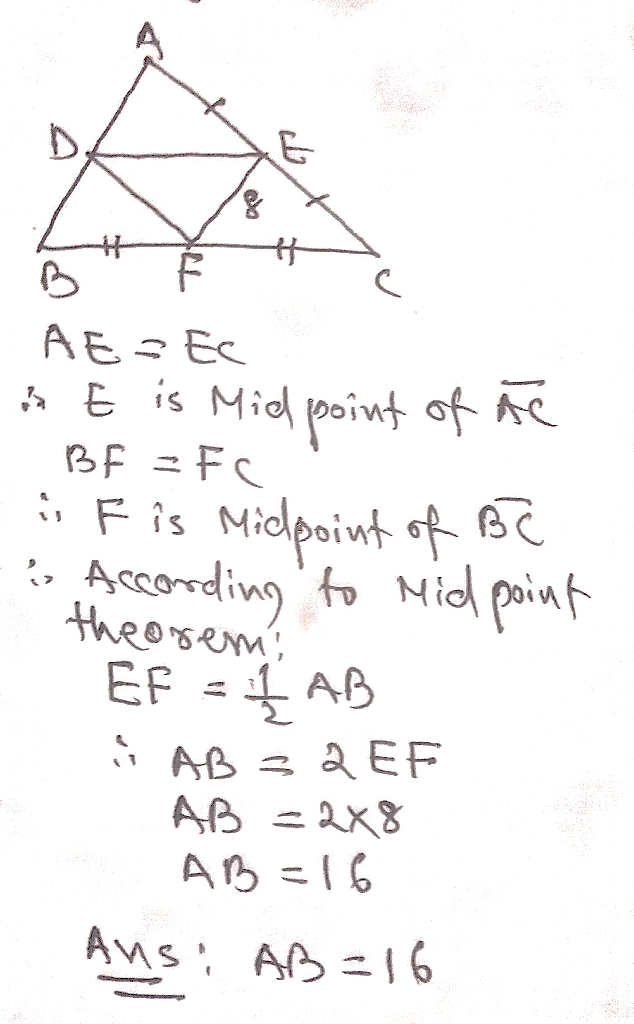 A
D E
8
B F C
AE = EC
∴ E is Midpoint of A̅C̅
BF = FC
∴ F is Midpoint of B̅C̅
∴ According to Midpoint
theorem;
EF = 1/2 AB
∴ AB = 2EF
AB = 2×8
AB = 16
Ans: AB = 16